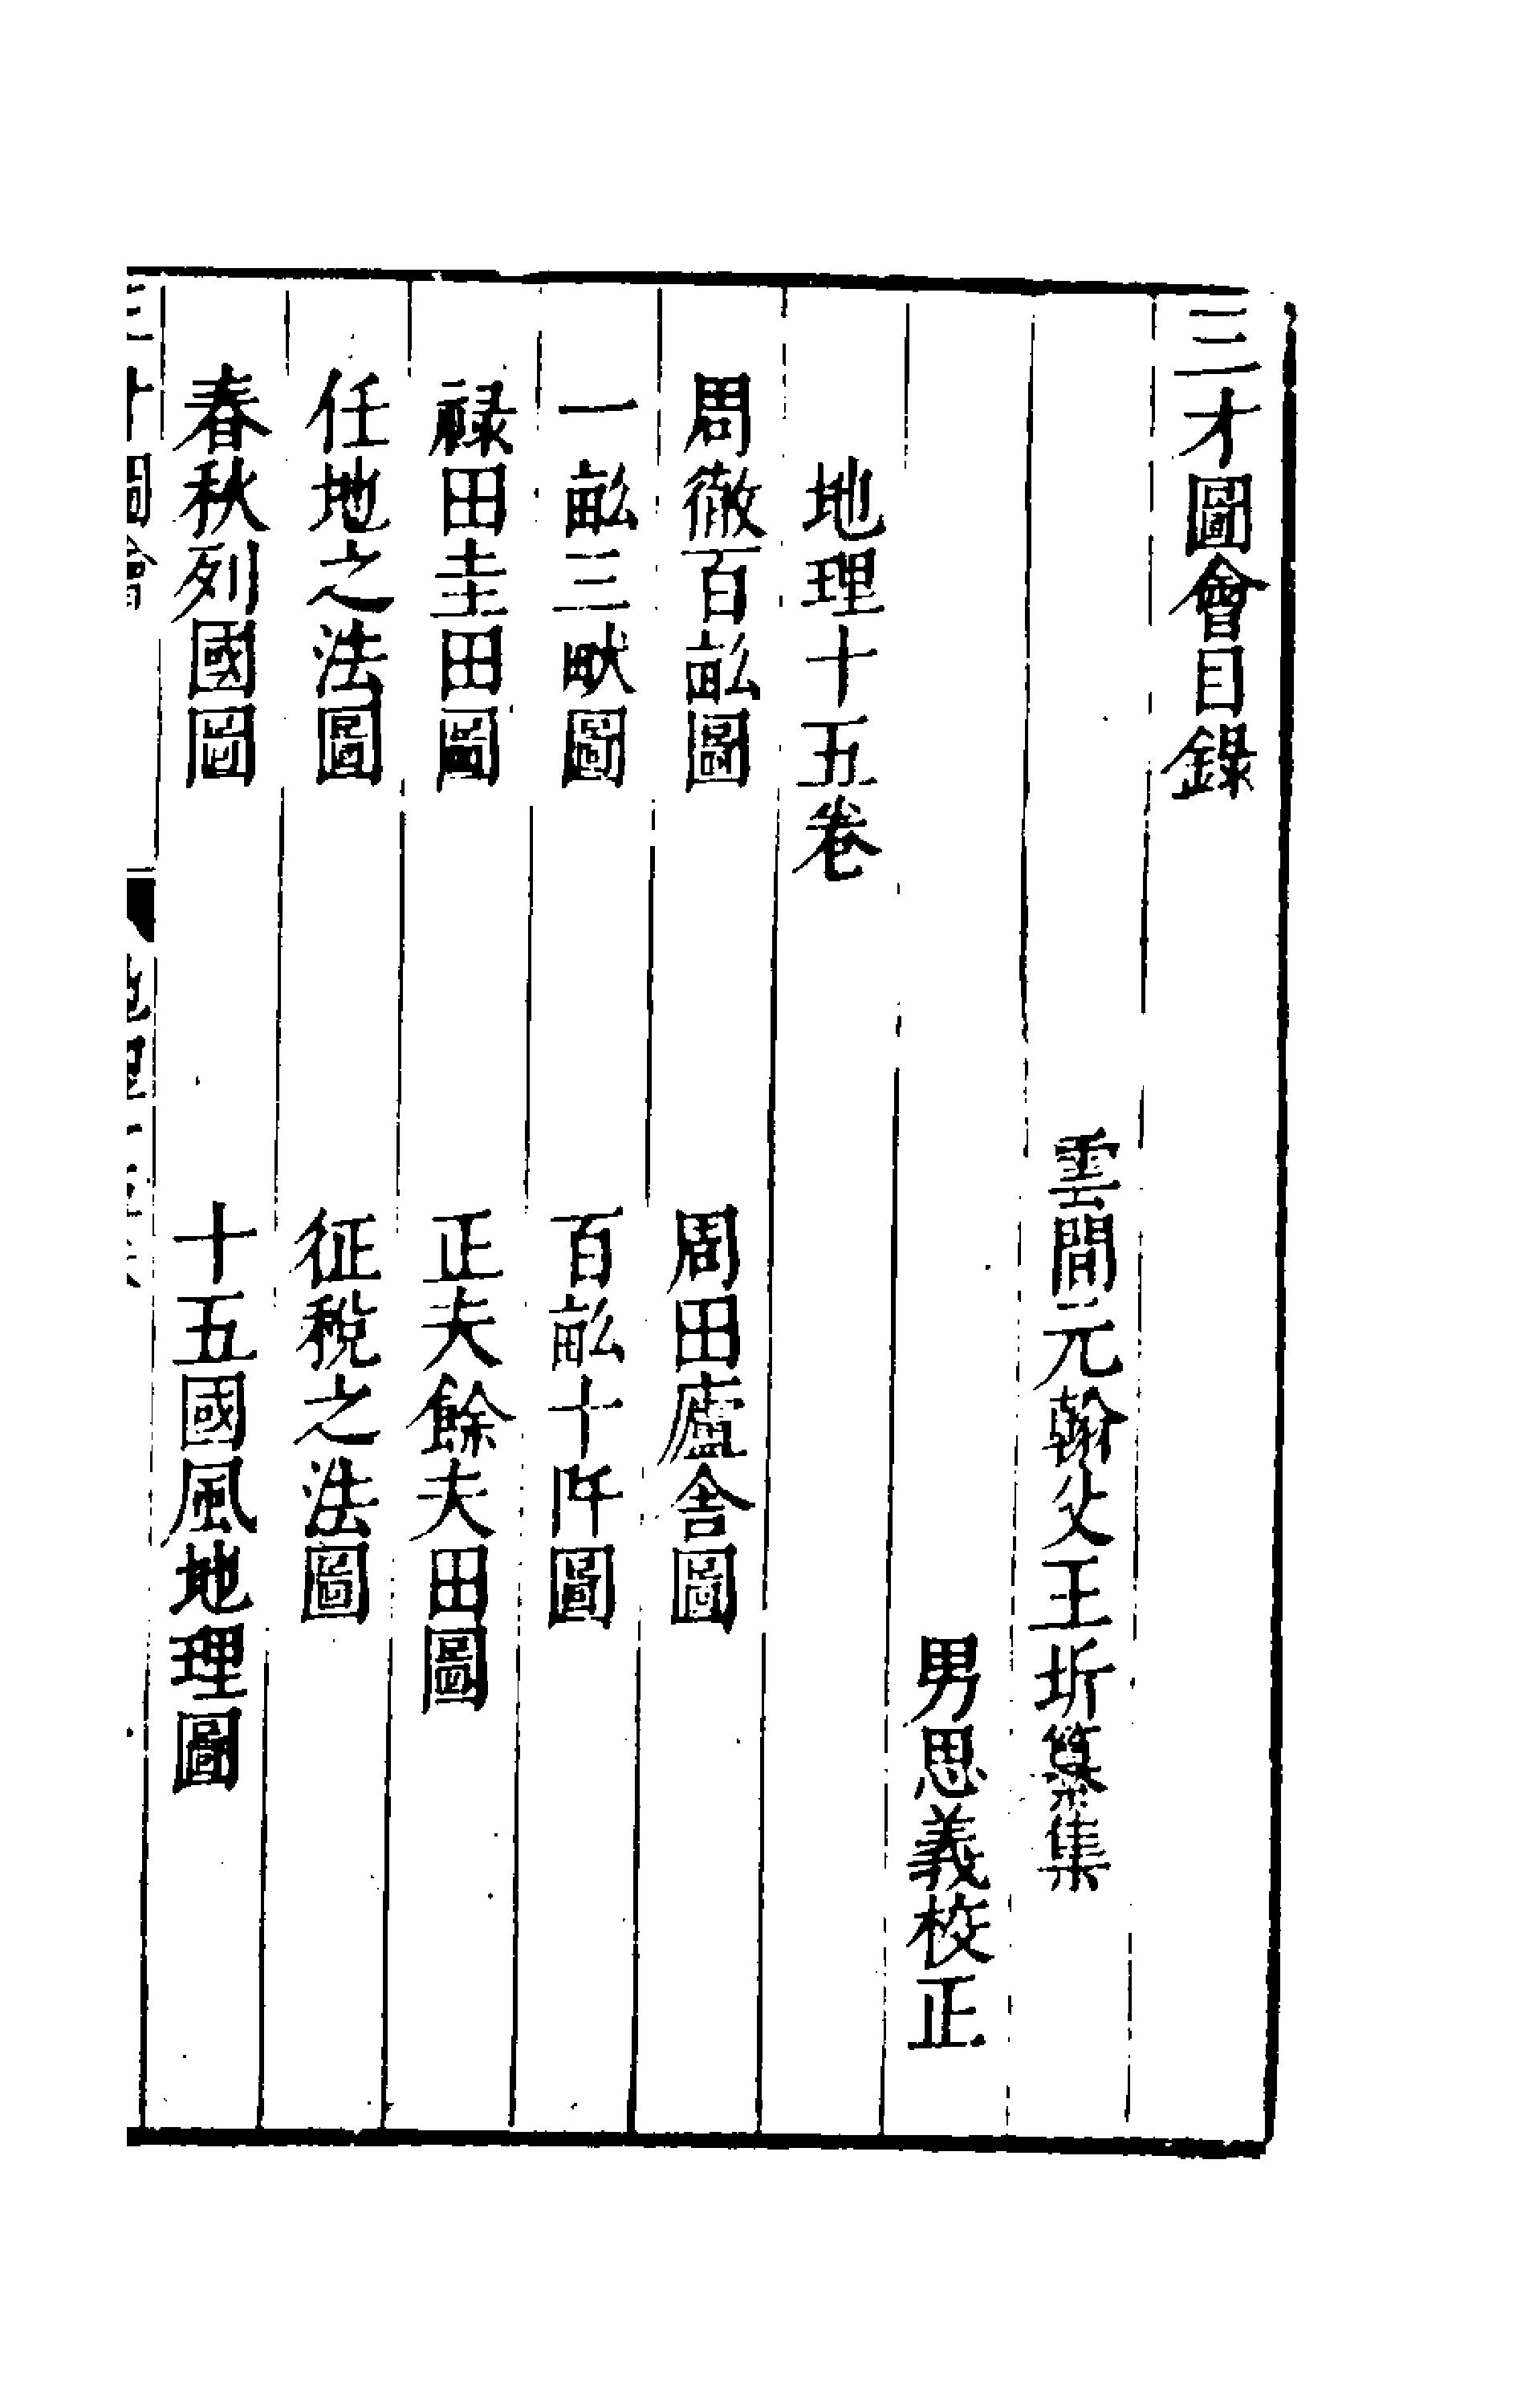 三才圖會目錄
雲間元翰父王圻纂集
男思義校正
地理十五卷
周徹百畝圖 周田廬舍圖
一畝三畎圖 百畝十阡圖
祿田圭田圖 正夫餘夫田圖
任地之法圖 征稅之法圖
春秋列國圖 十五國風地理圖
三才圖會